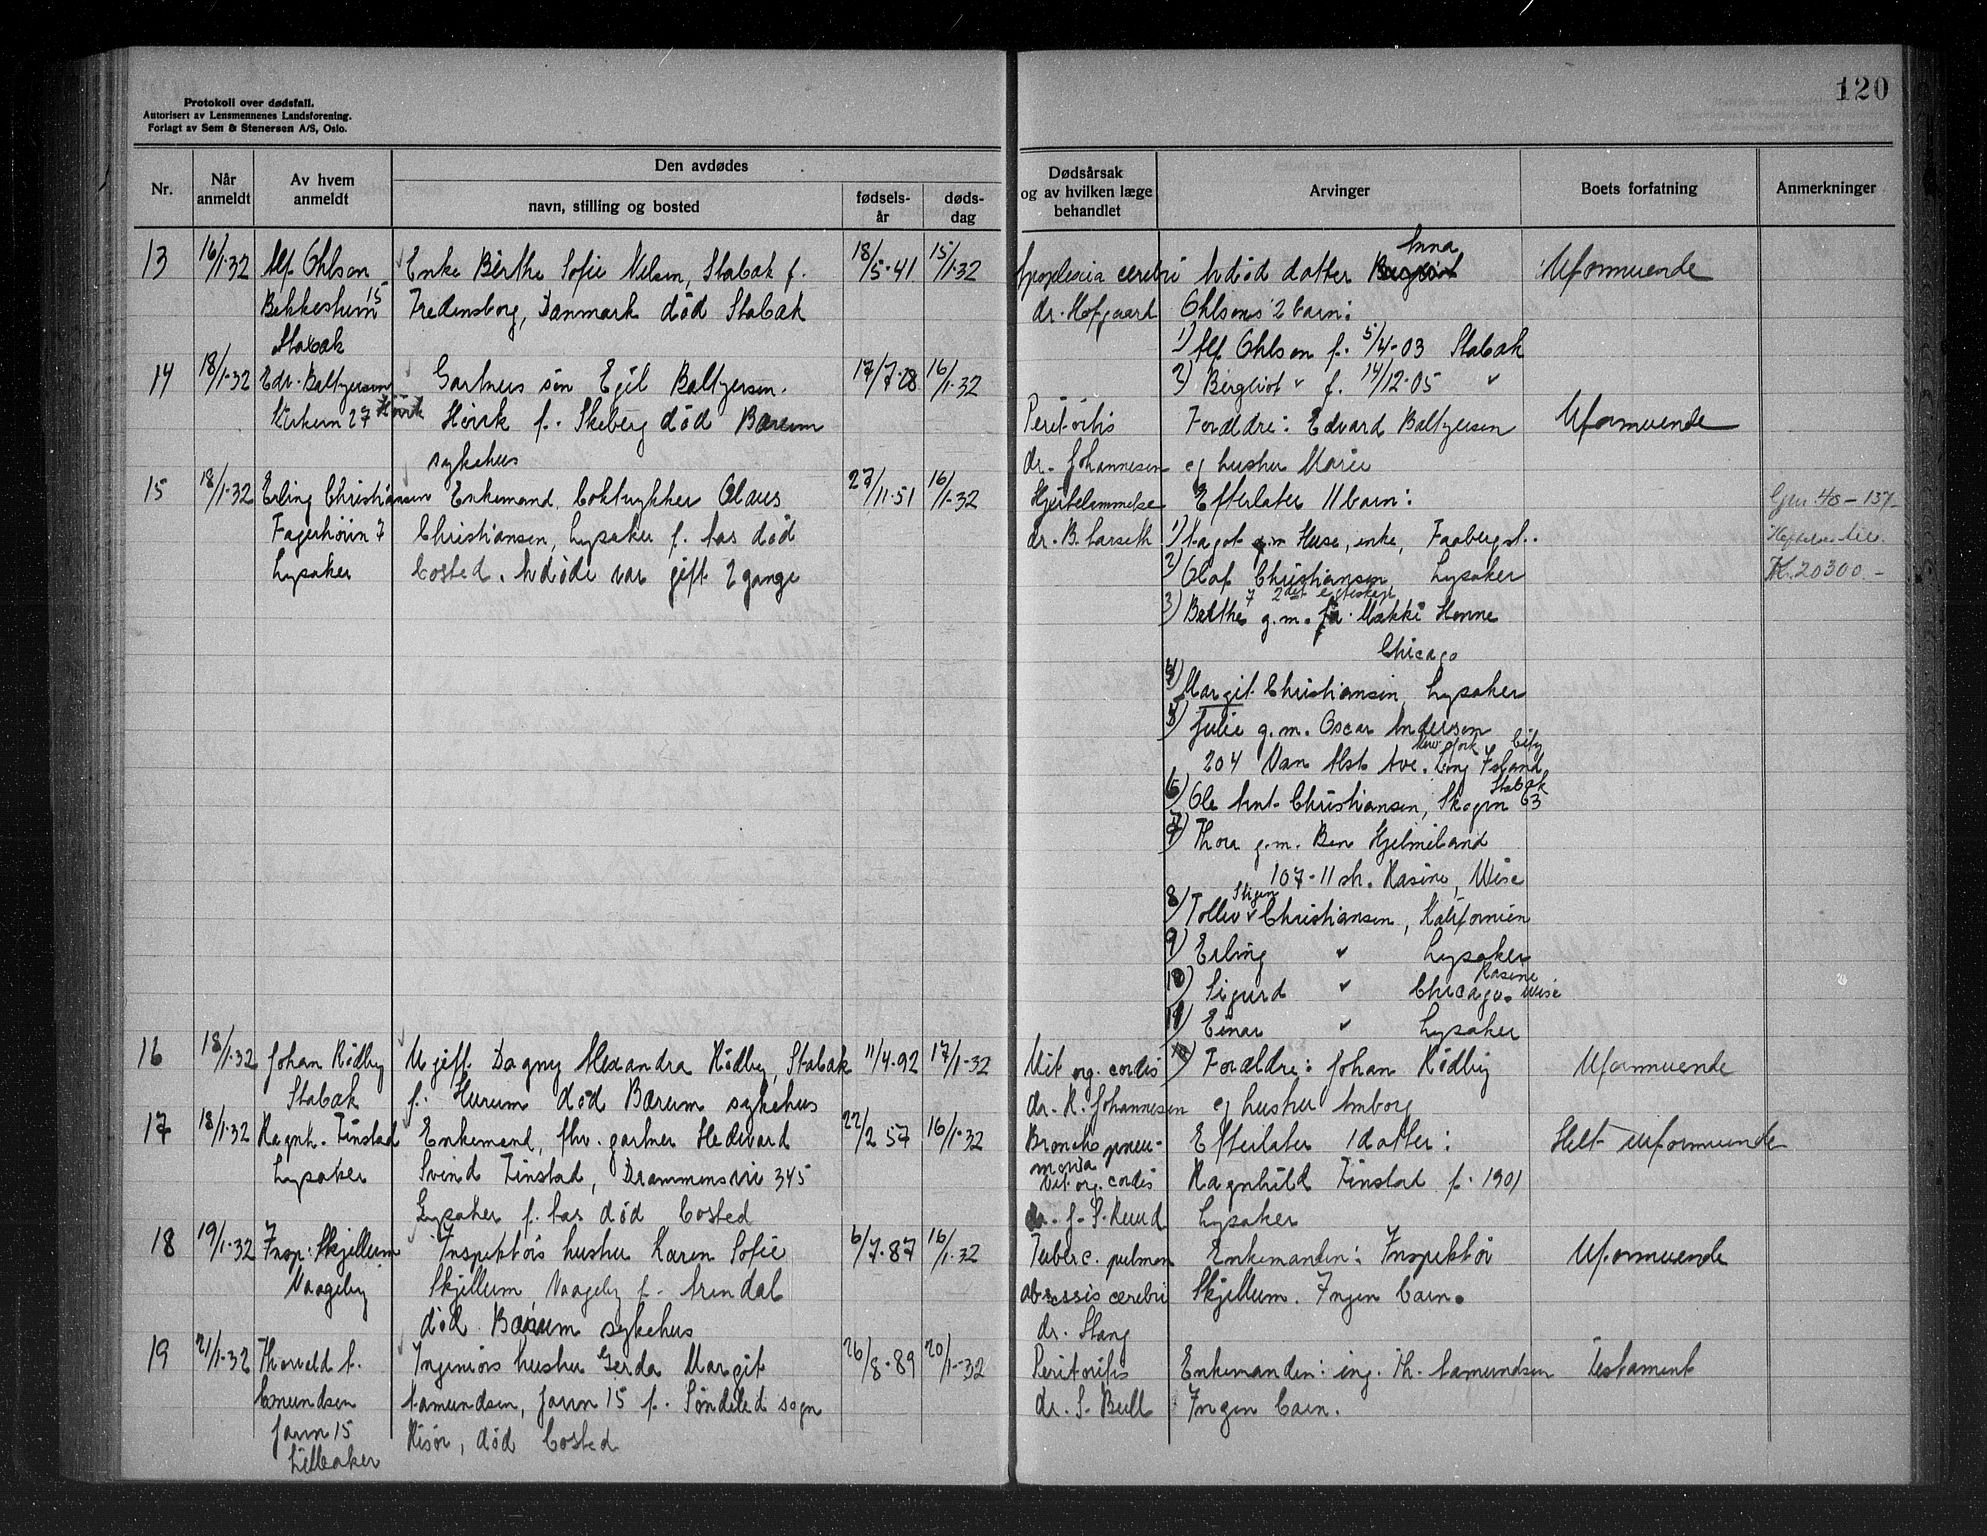 120
Protokoll over dødsfall.
Autorisert av Lensmennenes Landsforening.
Forlagt av Sem & Stenersen A/S, Oslo.
Nr.
Når anmeldt
Av hvem anmeldt
Den avdødes
navn, stilling og bosted
fødsels-år
døds-dag
Dødsårsak og av hvilken læge behandlet
Arvinger
Boets forfatning
Anmerkninger
13 16/1-32 Alf Ohlson Enke Berthe Sofie Nelsen, Stabæk f. 18/5-41. 15/1-32 Apoplexia cerebri Avdød datter Anna Uformuende
Bekkestuin 15 Fredensborg, Danmark død Stabæk dr. Hofgaard Ohlsons 2 barn:
Stabæk 1) Alf Ohlson f. 5/4-03 Stabæk
14 18/1-32 Edv. Baltzersen Gartners søn Egil Baltzersen. 17/7-28 16/1-32 2) Bergliot " f. 14/12-05 "
Kirkevn 27 Høvik Høvik f. Skeberg død Bærum Peritoitis Forældre: Edvard Baltzersen Uformuende
sykehus dr. Johannesen og hustru Marie
15 18/1-32 Erling Christiansen Enkemand, boktrykker Olaus 27/11-51 16/1-32 Hjertelammelse Efterlater 11 barn:
Fagerhøivn 7 Christiansen, Lysaker f. Aas død dr. B. Larseth 1) Aagot g.m. Huse, enke, Faabergst..
Lysaker bosted. Avdøde var gift 2 gange 2) Olaf Christiansen Lysaker
Kr. 20300.-
7 2det egteskap
3) Berthe g.m. Makki Honne
Chicago
4) Margit Christiansen, Lysaker
5) Julie g.m. Oscar Anderson
New York City
204 Van Alst Ave. Long Island
6) Ole Ant. Christiansen, Skogvn 63 Stabæk
7) Thora g.m. Ben Hjelmeland
107-11 str. Rasine, Wise
8) Tollev Stigen Christiansen, Kalifornien
9) Erling " Lysaker
10) Sigurd " Chicago. Rasine Wise
11) Einar " Lysaker
16 18/1-32 Johan Rødby Ugift Dagny Alexandra Rødby, Stabæk 11/4-92 17/1-32 Vit. org. cordis Forældre: Johan Rødby Uformuende
Stabæk f. Hurum død Bærum sykehus dr. R. Johannesen og hustru Amborg
17 18/1-32 Ragnh. Finstad Enkemand, fhv. gartner Hedevard 22/2 57 16/1-32 Broncho pneu- Efterlater 1 datter: Helt uformuende
monia
Lysaker Svend Finstad, Drammensvei 345 Vit. org. cordis Ragnhild Finstad f. 1901
Lysaker f. Aas død bosted dr. J. S. Ruud Lysaker
18 19/1-32 Insp. Skjellum Inspektørs hustru Karen Sofie 6/7-87 16/1-32 Tuberc. pulmon Enkemanden: Inspektør Uformuende
Vaageby Skjellum, Vaageby f. Arendal abscssis cerebri Skjellum. Ingen barn.
død Bærum sykehus dr. Stang
19 21/1-32 Thorvald A. Ingeniørs hustru Gerda Margit 26/8-89 20/1-32 Peritoritis Enkemanden: ing. Th. Aamundsen Testament
Aamundsen, Jarvn 15 f. Søndeled sogn dr. S. Bull Ingen barn.
Jarvn 15 Risør, død bosted
Lilleaker